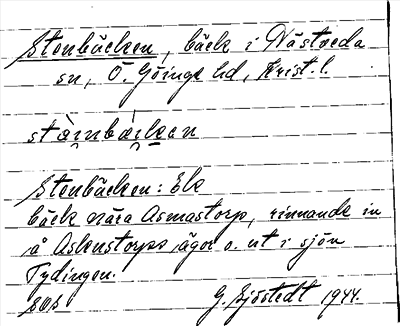 Stenbäcken, bäck i Nästveda
sn, Ö. Göinge hd, Krist. l.
stæinbæiken
Stenbäcken: Ek
bäck nära Asmastorp, rinnande in
å Aslenstorps ägor o. ut i sjön
Tydingen.
G. Sjöstedt 1944.